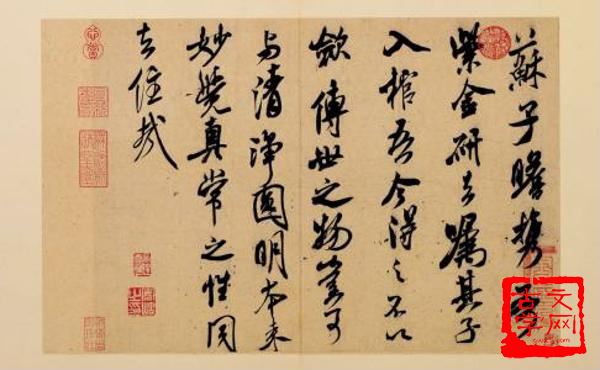 蘇子瞻携吾
紫金研去嘱其子
入棺吾今得之不以
斂傳世之物豈可
与清淨圓明本来
妙覺真常之性同
去住哉
古文学网